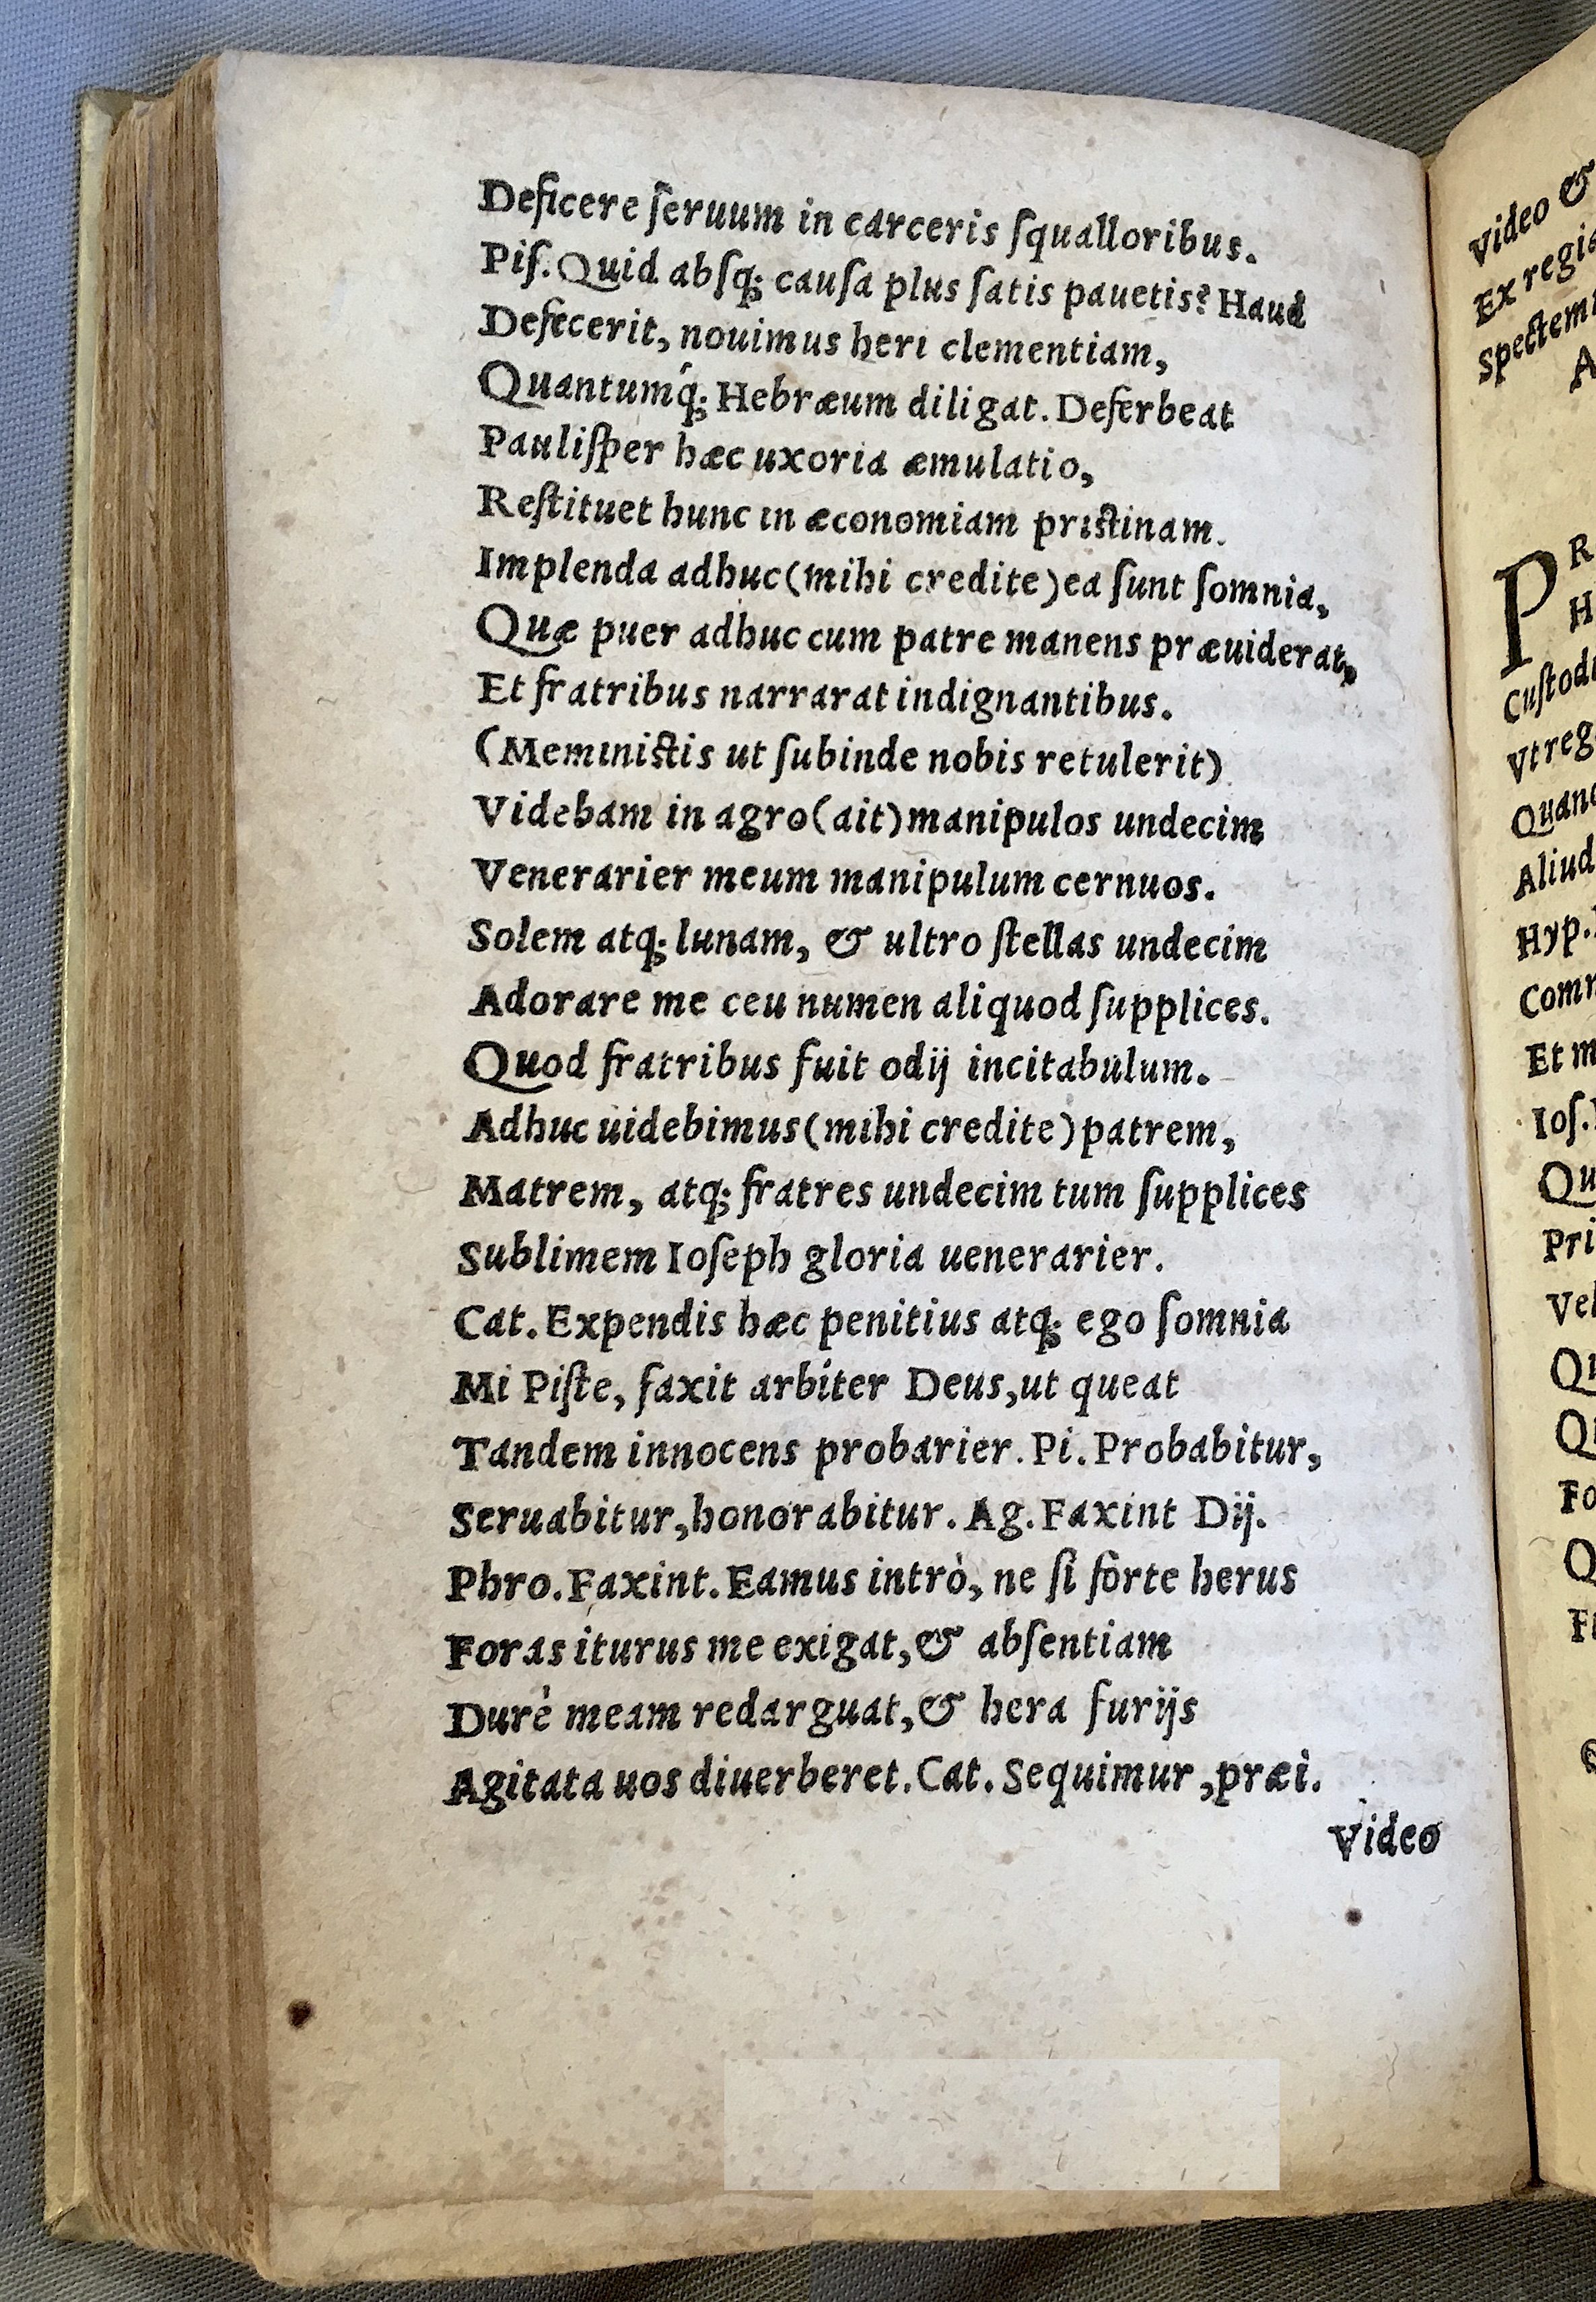 Deficere ſeruum in carceris ſqualloribus.
Piſ. Quid abſq; cauſa plus ſatis pauetis? Haud
Defecerit, nouimus heri clementiam,
Quantumq́; Hebræum diligat. Deferbeat
Pauliſper hæc uxoria æmulatio,
Reſtituet hunc in œconomiam priſtinam.
Implenda adhuc (mihi credite) ea ſunt ſomnia,
Quæ puer adhuc cum patre manens præuiderat,
Et fratribus narrarat indignantibus.
(Meminiſtis ut ſubinde nobis retulerit)
Videbam in agro (ait) manipulos undecim
Venerarier meum manipulum cernuos.
Solem atq; lunam, & ultro ſtellas undecim
Adorare me ceu numen aliquod ſupplices.
Quod fratribus fuit odij incitabulum.
Adhuc uidebimus (mihi credite) patrem,
Matrem, atq; fratres undecim tum ſupplices
Sublimem Ioſeph gloria uenerarier.
Cat. Expendis hæc penitius atq; ego ſomnia
Mi Piſte, faxit arbiter Deus, ut queat
Tandem innocens probarier. Pi. Probabitur,
Seruabitur, honorabitur. Ag. Faxint Dij.
Phro. Faxint. Eamus intrò, ne ſi forte herus
Foras iturus me exigat, & abſentiam
Durè meam redarguat, & hera furijs
Agitata uos diuerberet. Cat. Sequimur, præi.
Video
Video &
Ex regia
Spectem
A
P R
H
Cuſtod
Vt reg
Quan
Aliud
Hyp.
Com
Et m
Ioſ.
Qu
Pri
Vel
Qu
Qu
Fo
Q
F